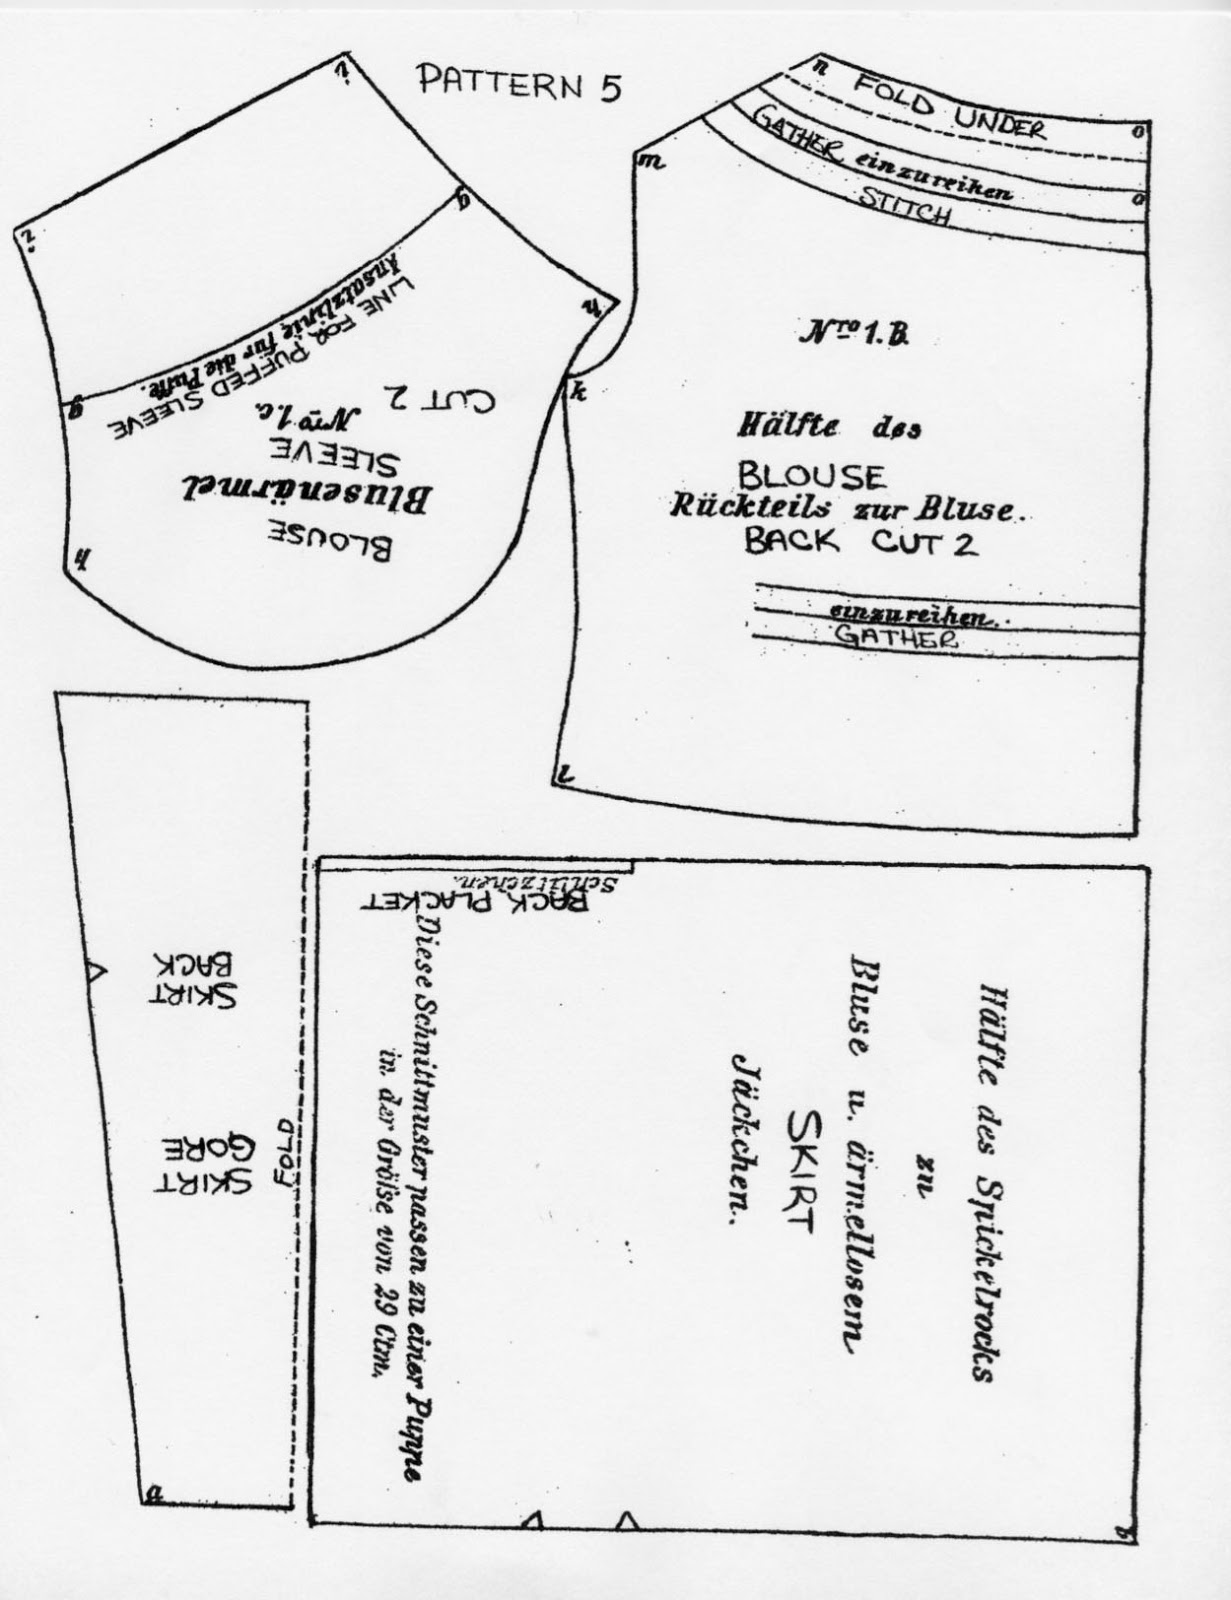 PATTERN 5
i
i
g
g
h
h
Ansatzlinie für die Puffe.
LINE FOR PUFFED SLEEVE
CUT 2
BLOUSE
Blusenärmel
SLEEVE
Nro 1.c.
n
o
FOLD UNDER
m
GATHER einzureihen
o
STITCH
k
Nro 1.B.
Hälfte des
BLOUSE
Rückteils zur Bluse.
BACK CUT 2
einzureihen.
GATHER
l
SKIRT
GORE
FOLD
SKIRT
BACK
a
Schlitzchen.
BACK PLACKET
Hälfte des Spickelrocks
zu
Bluse u. ärmellosem
SKIRT
Jäckchen.
Diese Schnittmuster passen zu einer Puppe
in der Größe von 29 Ctm.